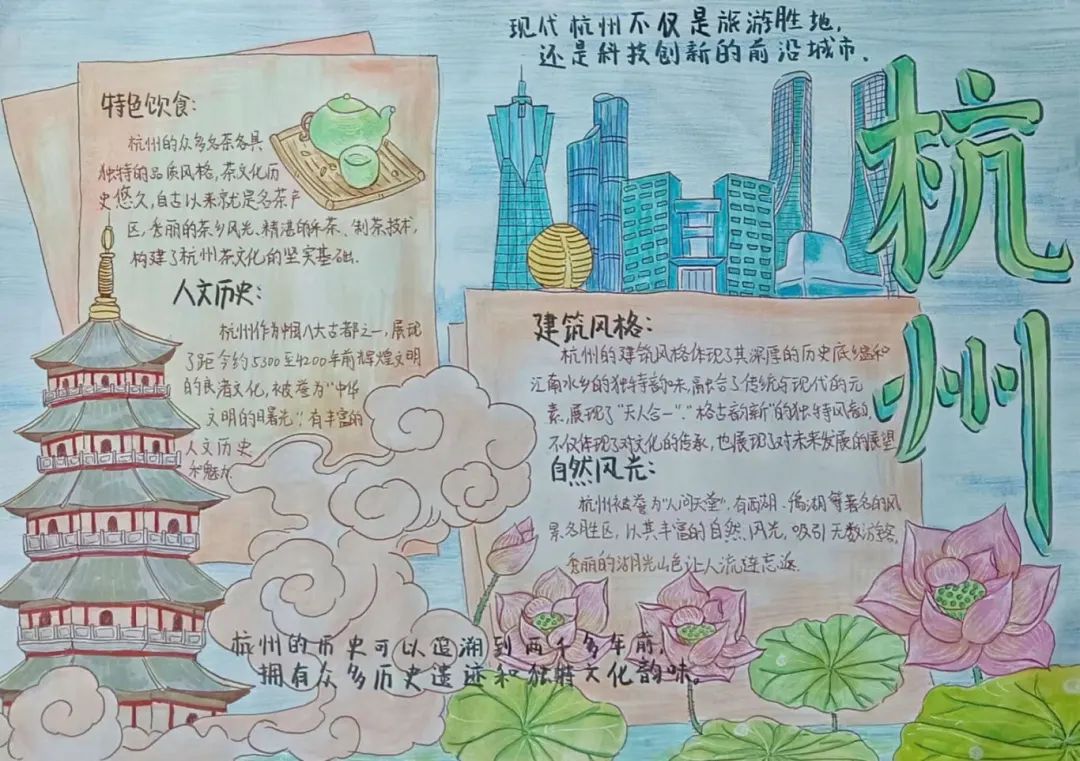 现代杭州不仅是旅游胜地,
还是科技创新的前沿城市.
杭州
特色饮食:
杭州的众多名茶各具
独特的品质风格,茶文化历
史悠久,自古以来就是名茶产
区,秀丽的茶乡风光.精湛的采茶、制茶技术,
构建了杭州茶文化的坚实基础.
人文历史:
杭州作为中国八大古都之一,展现
了距今约5300至4200年前辉煌文明
的良渚文化,被誉为"中华
文明的曙光",有丰富的
人文历史
和魅力.
建筑风格:
杭州的建筑风格体现了其深厚的历史底蕴和
江南水乡的独特韵味,融合了传统与现代的元
素,展现了"天人合一","格古韵新"的独特风韵,
不仅体现了对文化的传承,也展现了对未来发展的展望
自然风光:
杭州被誉为"人间天堂",有西湖、湖等著名的风
景名胜区,以其丰富的自然风光,吸引无数游客,
秀丽的湖光山色让人流连忘返.
杭州的历史可以追溯到两千多年前,
拥有众多历史遗迹和独特文化韵味。